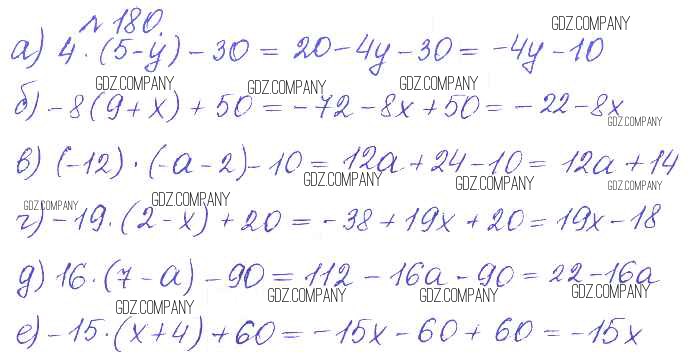 № 180.
GDZ.COMPANY
а) 4 · (5-y) - 30 = 20 - 4y - 30 = -4y - 10
GDZ.COMPANY GDZ.COMPANY GDZ.COMPANY
б) -8(9+x) + 50 = -72 - 8x + 50 = -22 - 8x
GDZ.COMPANY
в) (-12) · (-a - 2) - 10 = 12a + 24 - 10 = 12a + 14
GDZ.COMPANY GDZ.COMPANY GDZ.COMPANY
GDZ.COMPANY GDZ.COMPANY
г) -19 · (2-x) + 20 = -38 + 19x + 20 = 19x - 18
д) 16 · (7-a) - 90 = 112 - 16a - 90 = 22 - 16a
GDZ.COMPANY GDZ.COMPANY GDZ.COMPANY GDZ.COMPANY
е) -15 · (x+4) + 60 = -15x - 60 + 60 = -15x